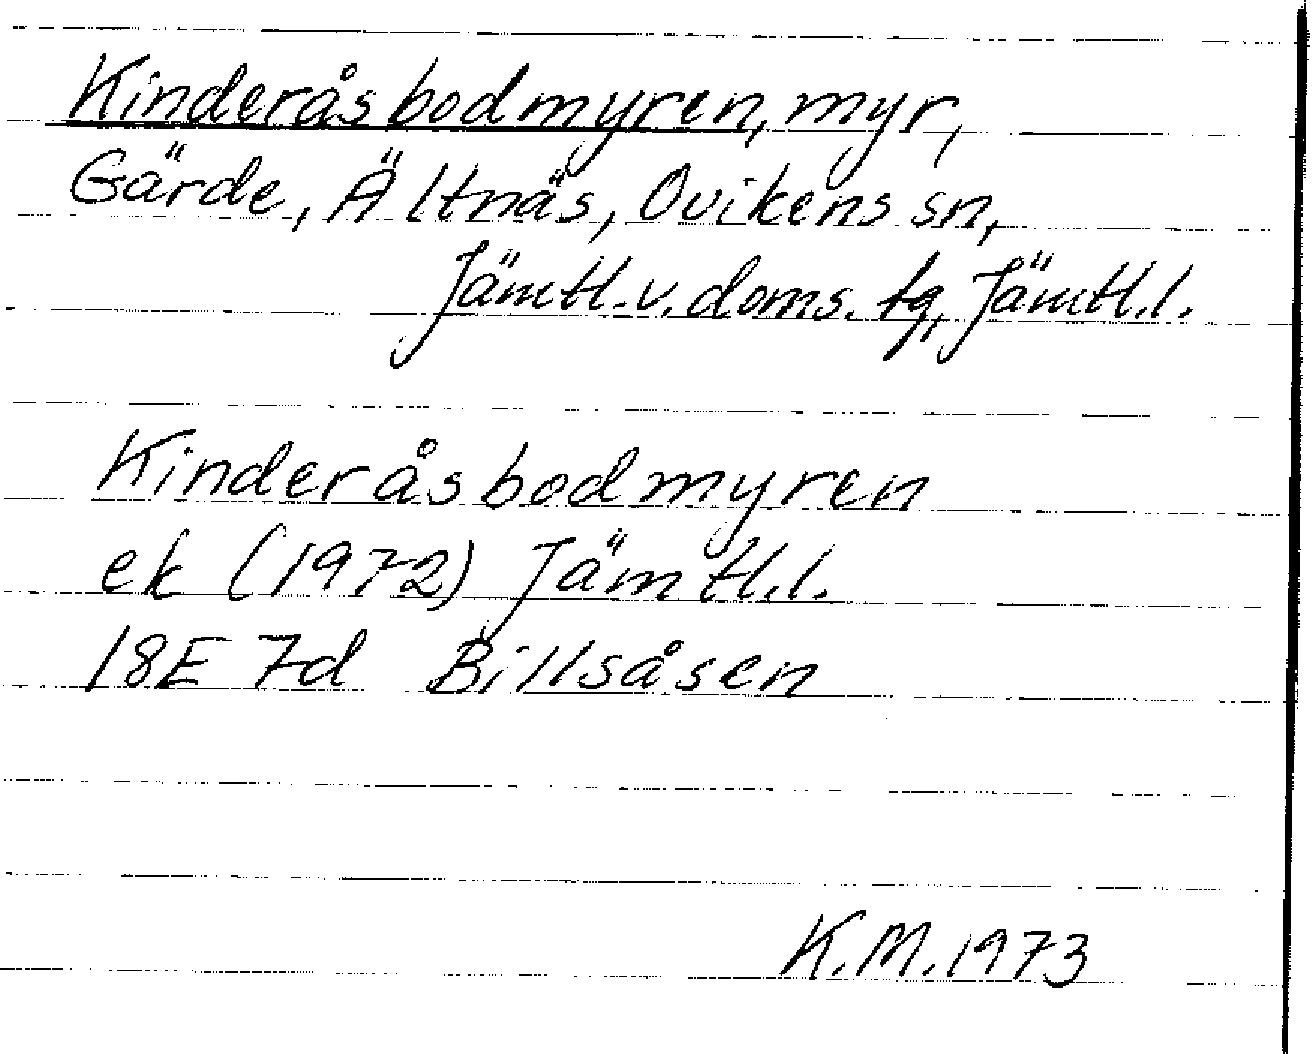 Kinderåsbodmyren, myr,
Gärde, Ältnäs, Ovikens sn,
Jämtl. v. doms. tg, Jämtl. l.
Kinderåsbodmyren
ek (1972) Jämtl. l.
18E 7d Billsåsen
K.M. 1973